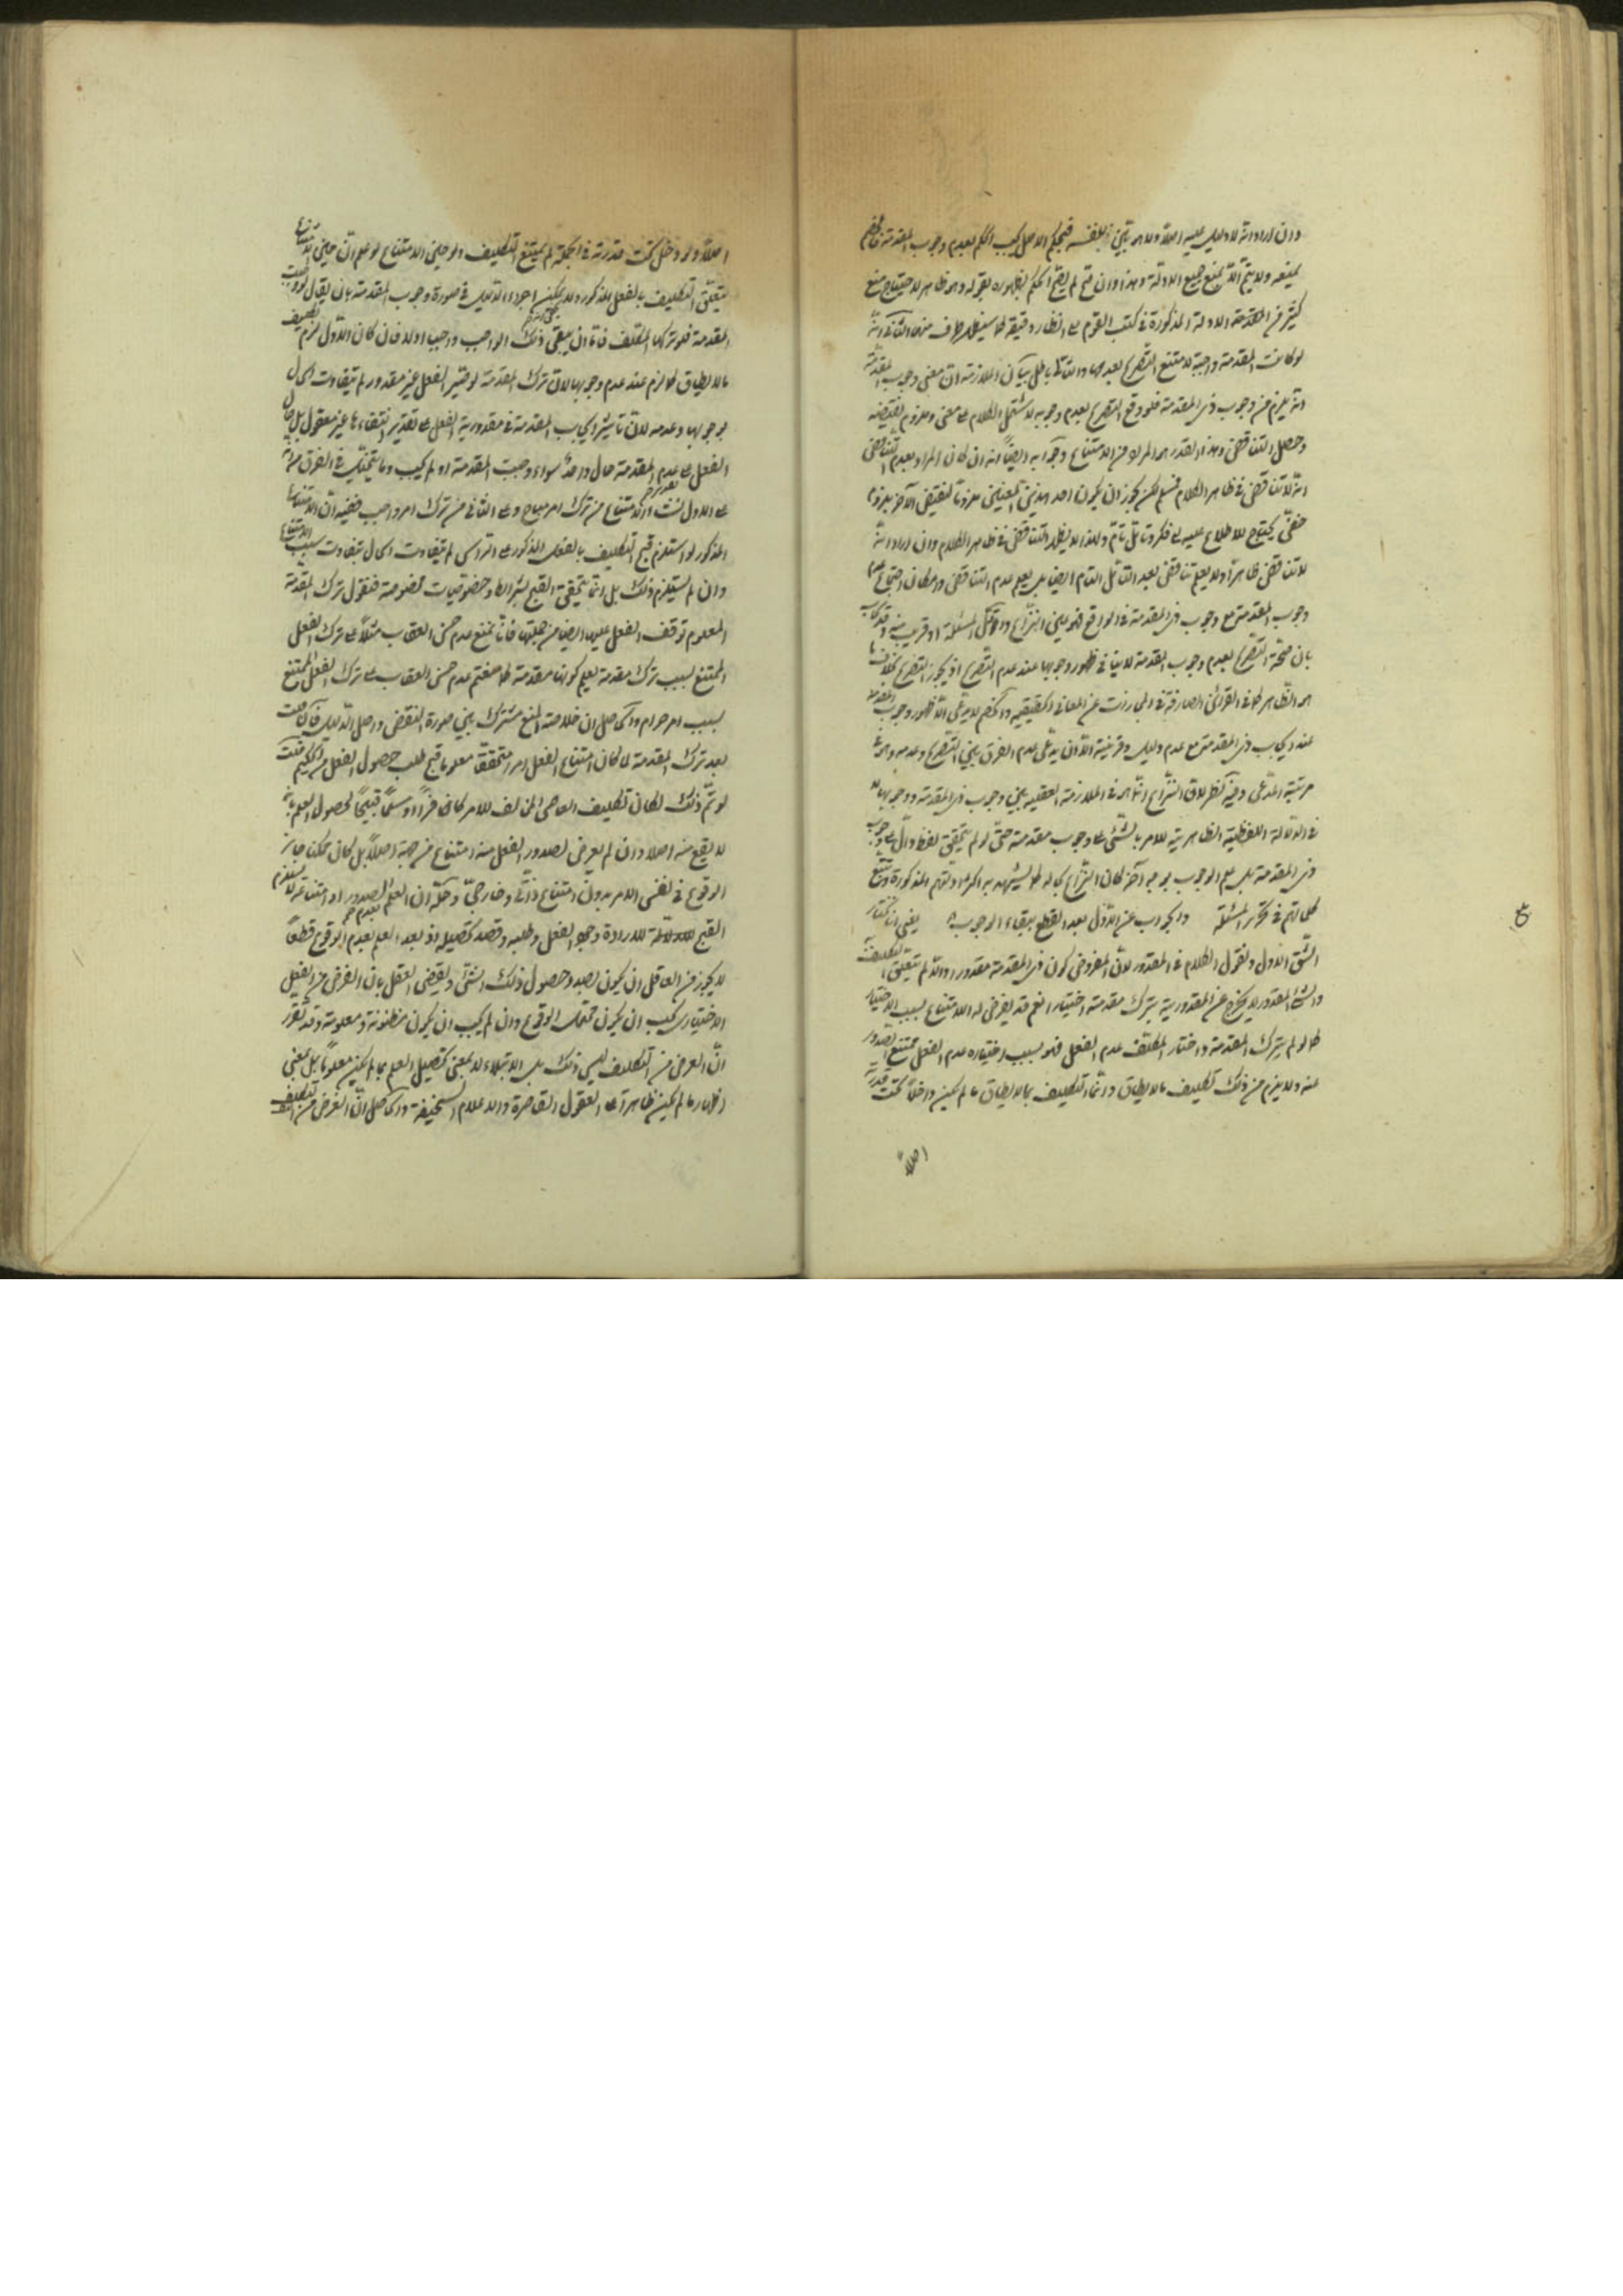 وان اراد انه لا دليل عليه اصلا ولا هو بيّن بنفسه فيحكم الاصل يجب الحكم بعدم وجوب المقدمة
يمنعه ولا يتم الا بمنع جميع الادلة وهذا وان صح لم يصح الحكم بظهوره بقوله وهو ظاهر لاحتياج منع
كثير من الادلة المذكورة في كتب القوم على انظار دقيقة كما سيظهر طرف منها الثاني انه
لو كانت المقدمة واجبة لامتنع التصريح بعدمها والتالي باطل بيان الملازمة ان معنى وجوب المقدمة
انه يلزم من وجوب ذي المقدمة فلو وقع التصريح بعدم وجوبه لاشتمل الكلام على معنى وملزوم نقيضه
وحصل التناقض وهذا القدر هو المراد من الامتناع وجوابه ايضا انه ان كان المراد بعدم التناقض
انه لا تناقض في ظاهر الكلام فمسلم لكن يجوز ان يكون احد هذين المعنيين ملزوما لنقيض الآخر بلزوم
خفي يحتاج الاطلاع عليه الى فكر وتأمل تام ولهذا لا يظهر التناقض في ظاهر الكلام وان اراد انه
لا تناقض ظاهرا ولا يعلم تناقض بعد التأمل التام ايضا بل يعلم عدم التناقض وامكان اجتماع عدم
وجوب المقدمة مع وجوب ذي المقدمة في الواقع فهو عين النزاع واول المسئلة او قريب منه وقد يجاب
بان صحة التصريح بعدم وجوب المقدمة لا ينافي ظهور وجوبها عند عدم التصريح اذ يجوز التصريح بخلاف ما
هو الظاهر كما في القرائن الصارفة في المجازات عن المعاني الحقيقية والخصم لا يدعي الا ظهور وجوب المقدمة
عند ايجاب ذي المقدمة مع عدم دليل وقرينة الا ان يدعى عدم الفرق بين التصريح وعدمه وهو في
مرتبة المدعى وفيه نظر لان النزاع انما هو في الملازمة العقلية بين وجوب ذي المقدمة ووجوبها لا
في الدلالة اللفظية الظاهرية للامر بالشيء على وجوب مقدمته حتى لو لم يتحقق لفظ دال على وجوب
ذي المقدمة بل علم الوجوب بوجه آخر لكان النزاع بحاله كما يشهد به اكثر ادلتهم المذكورة وتتبع
كلماتهم في تحرير المسئلة والجواب عن الاول بعد القطع ببقاء الوجوب يعني انا نختار
الشق الاول ونقول الكلام في المقدور لان المفروض كون ذي المقدمة مقدورا والا لم يتعلق التكليف
والشيء المقدور لا يخرج عن المقدورية بترك مقدمته اختيارا نعم قد يعرض له الامتناع بسبب الاختيار
كما لو لم يترك المقدمة واختار المكلف عدم الفعل فهو بسبب اختياره عدم الفعل ممتنع الصدور
عنه ولا يلزم من ذلك تكليف ما لا يطاق وانما التكليف بما لا يطاق ما لم يكن داخلا تحت قدرته
اصلا
اصلا ولو دخل تحت قدرته في الجملة لم يمتنع التكليف ولو حين الامتناع لو علم ان حين الامتناع
يتعلق التكليف بالفعل المذكور ولا يمكن اجراء الدليل في صورة وجوب المقدمة بان يقال لو وجبت
المقدمة فلو تركها المكلف فاما ان يبقى ذلك الواجب واجبا او لا فان كان الاول لزم تكليف
ما لا يطاق كما لزم عند عدم وجوبها لان ترك المقدمة لو صير الفعل غير مقدور لم يتفاوت الحال
بوجوبها وعدمه لان تأثير ايجاب المقدمة في مقدورية الفعل على تقدير انتفائها غير معقول بل حال
الفعل على عدم المقدمة حال واحد سواء وجبت المقدمة او لم يجب وما يتخيل في الفرق من انه
على الاول نشأ الامتناع من ترك امر مباح وعلى الثاني من ترك امر واجب ففيه ان الامتناع
المذكور لو استلزم قبح التكليف بالفعل المذكور على اي وجه لم يتفاوت الحال بتفاوت سبب الامتناع
وان لم يستلزم ذلك بل انما يتحقق القبح بشرائط وخصوصيات مخصوصة فنقول ترك المقدمة
المعلوم توقف الفعل عليها ايضا من جملتها فانا نمنع عدم حسن العقاب مثلا على ترك الفعل
الممتنع بسبب ترك مقدمة يعلم كونها مقدمة كما منعتم عدم حسن العقاب على ترك الفعل الممتنع
بسبب امر حرام والحاصل ان خلاصة المنع مشترك بين صورة النقض واصل الدليل فان قلت
بعد ترك المقدمة لما كان امتناع الفعل امرا متحققا معلوما قبح طلب حصول الفعل من الحكيم قلت
لو تم ذلك لكان تكليف العاصي المخالف للامر كافرا او مسلما قبيحا لحصول العلم بانه
لا يقع منه اصلا وان لم يعرض لصدور الفعل منه امتناع من جهة اصلا بل كان ممكنا جائز
الوقوع في نفس الامر بدون امتناع ذاتي وخارجي وحله ان العلم بعدم الصدور او امتناعه لا يستلزم
القبح الا لارادة وجود الفعل وطلبه وقصد تحصيله اذ بعد العلم بعدم الوقوع قطعا
لا يجوز من العاقل ان يكون بصدد حصول ذلك الشيء ويقضي العقل بان الغرض من الفعل
الاختياري يجب ان يكون محتمل الوقوع وان لم يجب ان يكون مظنونة او معلومة وقد تقرر
ان الغرض من التكليف ليس ذلك بل الابتلاء لا بمعنى تحصيل العلم بما لم يكن معلوما بل بمعنى
اظهار ما لم يكن ظاهرا على العقول القاصرة والاحلام السخيفة والحاصل ان الغرض من التكليف